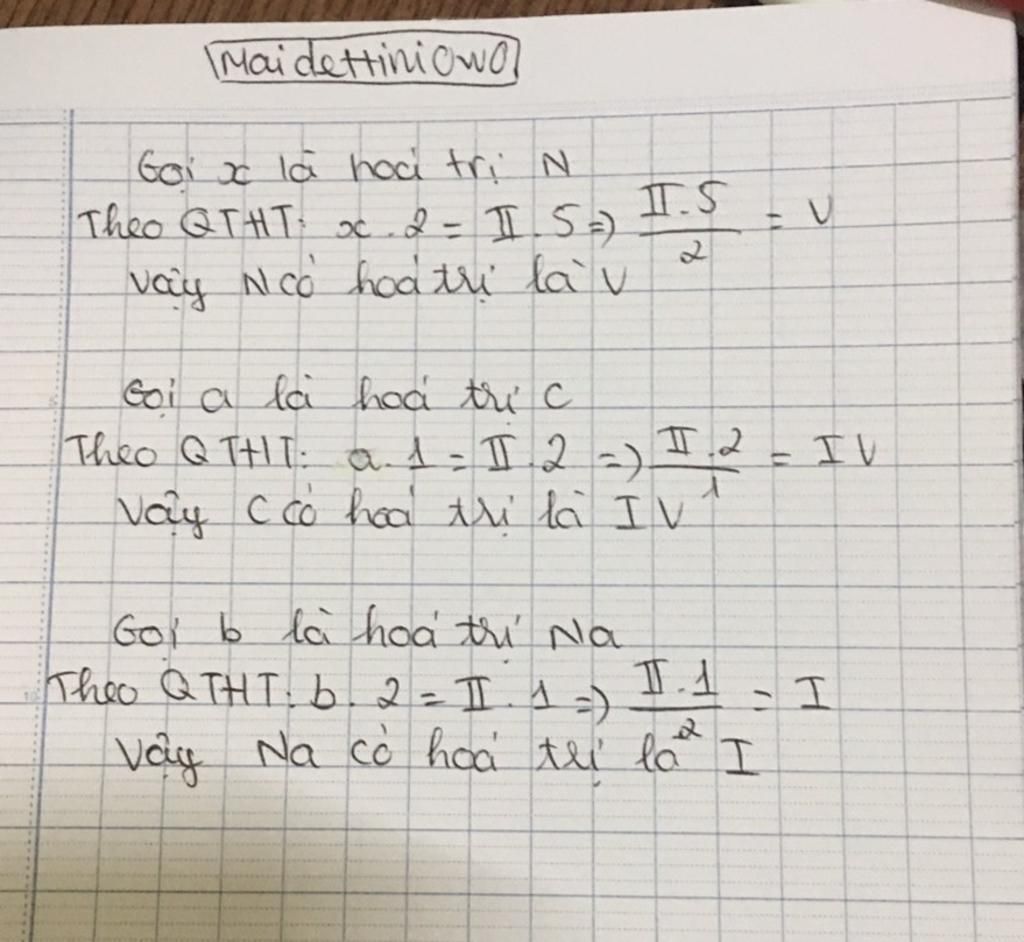 MaidettiniOwO
Gọi x là hoá trị N
Theo QTHT: x.2 = II.5 => II.5/2 = V
Vậy N có hoá trị là V
Gọi a là hoá trị C
Theo QTHT: a.1 = II.2 => II.2/1 = IV
Vậy C có hoá trị là IV
Gọi b là hoá trị Na
Theo QTHT: b.2 = II.1 => II.1/2 = I
Vậy Na có hoá trị là I